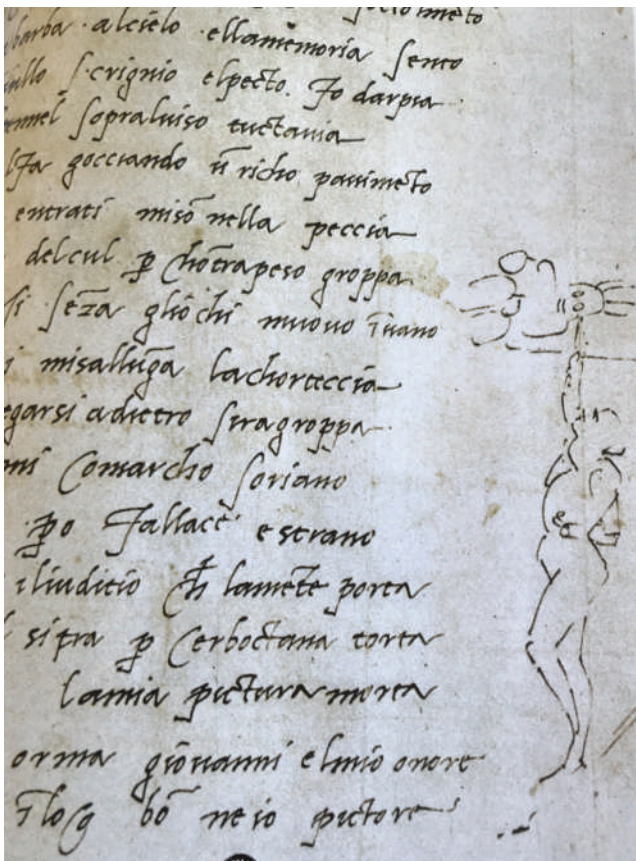 barba · alcielo · ellamemoria sento
scrignio elpecto · fo darpia
sopraluiso tuctauia
fa gocciando ū richo pauimēto
entrati misō nella peccia
delcul ꝑ chōtrapeso groppa
seza gliochi muouo ĩuano
misallūga lachorteccia
egarsi adietro siragroppa
comarcho soriano
ꝑo fallace estrano
iliuditio ch̄ lamēte porta
sitra ꝑ cerboctana torta
lamia pictura morta
orma giouanni elmio onore
ĩlog bō ne io pictore